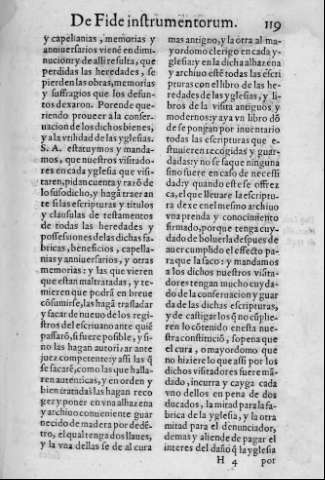 De Fide instrumentorum. 119
y capellanias, memorias y
anniuersarios viené en dimi-
nucion: y de alli resulta, que
perdidas las heredades, se
pierden las obras, memorias
y suffragios que los defun-
tos dexaron. Porende que-
riendo proueer a la conser-
uacion de los dichos bienes,
y a la vtilidad de las yglesias.
S. A. estatuymos y manda-
mos, que nuestros visitado-
res en cada yglesia que visi-
taren, pidan cuenta y razõ de
lo susodicho, y hagã traer an
te si las escripturas y titulos
y clausulas de testamentos
de todas las heredades y
possessiones de las dichas fa-
bricas, beneficios, capella-
nias y anniuersarios, y otras
memorias: y las que vieren
que estan maltratadas, y te-
mieren que podrã en breue
cõsumirse, las hagã trasladar
y sacar de nueuo de los regi-
stros del escriuano ante quiẽ
passarõ, si fuere posible, y si-
no las hagan autorizar ante
juez competente: y assi las q̃
se sacarẽ, como las que halla-
ren autenticas, y en orden y
bien tratadas las hagan reco
ger y poner en vna alhazena
y archiuo conueniente guar
necido de madera por dedẽ-
tro, el qual tenga dos llaues,
y la vna dellas se de al cura
mas antigno, y la otra al ma-
yordomo clerigo en cada y-
glesia: y en la dicha alhazena
y archiuo estẽ todas las escri
pturas con el libro de las he-
redades de las yglesias, y li-
bros de la visita antiguos y
modernos: y aya vn libro dõ
de se pongan por inuentario
todas las escripturas que e-
stuuieren recogidas y guar-
dadas: y no se saque ninguna
sino fuere en caso de necessi
dad: y quando este se offrez
ca, el que lleuare la escriptu-
ra dexe en el mesmo archiuo
vna prenda y conocimiento
firmado, porque tenga cuy-
dado de boluerla despues de
auer cumplido el effecto pa-
ra que la saco: y mandamos
a los dichos nuestros visita-
dores tengan mucho cuyda-
do de la conseruacion y guar
da de las dichas escripturas,
y de castigar los q̃ no cũplie-
ren lo cõtenido en esta nue-
stra constituciõ, so pena que
el cura, o mayordomo que
no hiziere lo que assi por los
dichos visitadores fuere mã-
dado, incurra y cayga cada
vno dellos en pena de dos
ducados, la mitad para la fa-
brica de la yglesia, y la otra
mitad para el denunciador,
demas y aliende de pagar el
interes del daño q̃ la yglesia
H 4 por